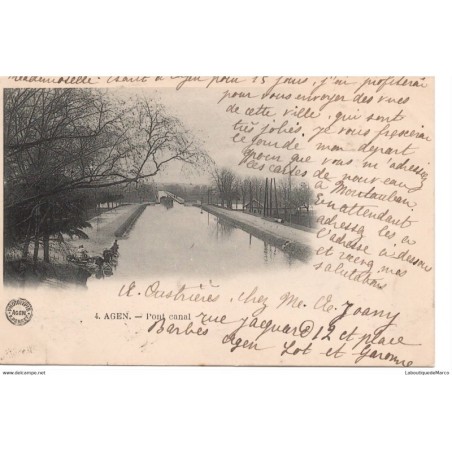 Mademoiselle étant à Agen pour 15 jours, j'en profiterai
pour vous envoyer des vues
de cette ville, qui sont
très jolies. Je vous préviendrai
le jour de mon départ
pour que vous m'adressiez
les cartes de nouveau
à Montauban
En attendant
adressez les à
l'adresse ci dessous
et recevez mes
salutations
A. Oustrières, chez Mr. A. Joany
4. AGEN. — Pont canal
rue Jacquard 12 et place
Barbès Agen Lot et Garonne
AGEN
www.laboutiquedemarco.com
LaboutiquedeMarco